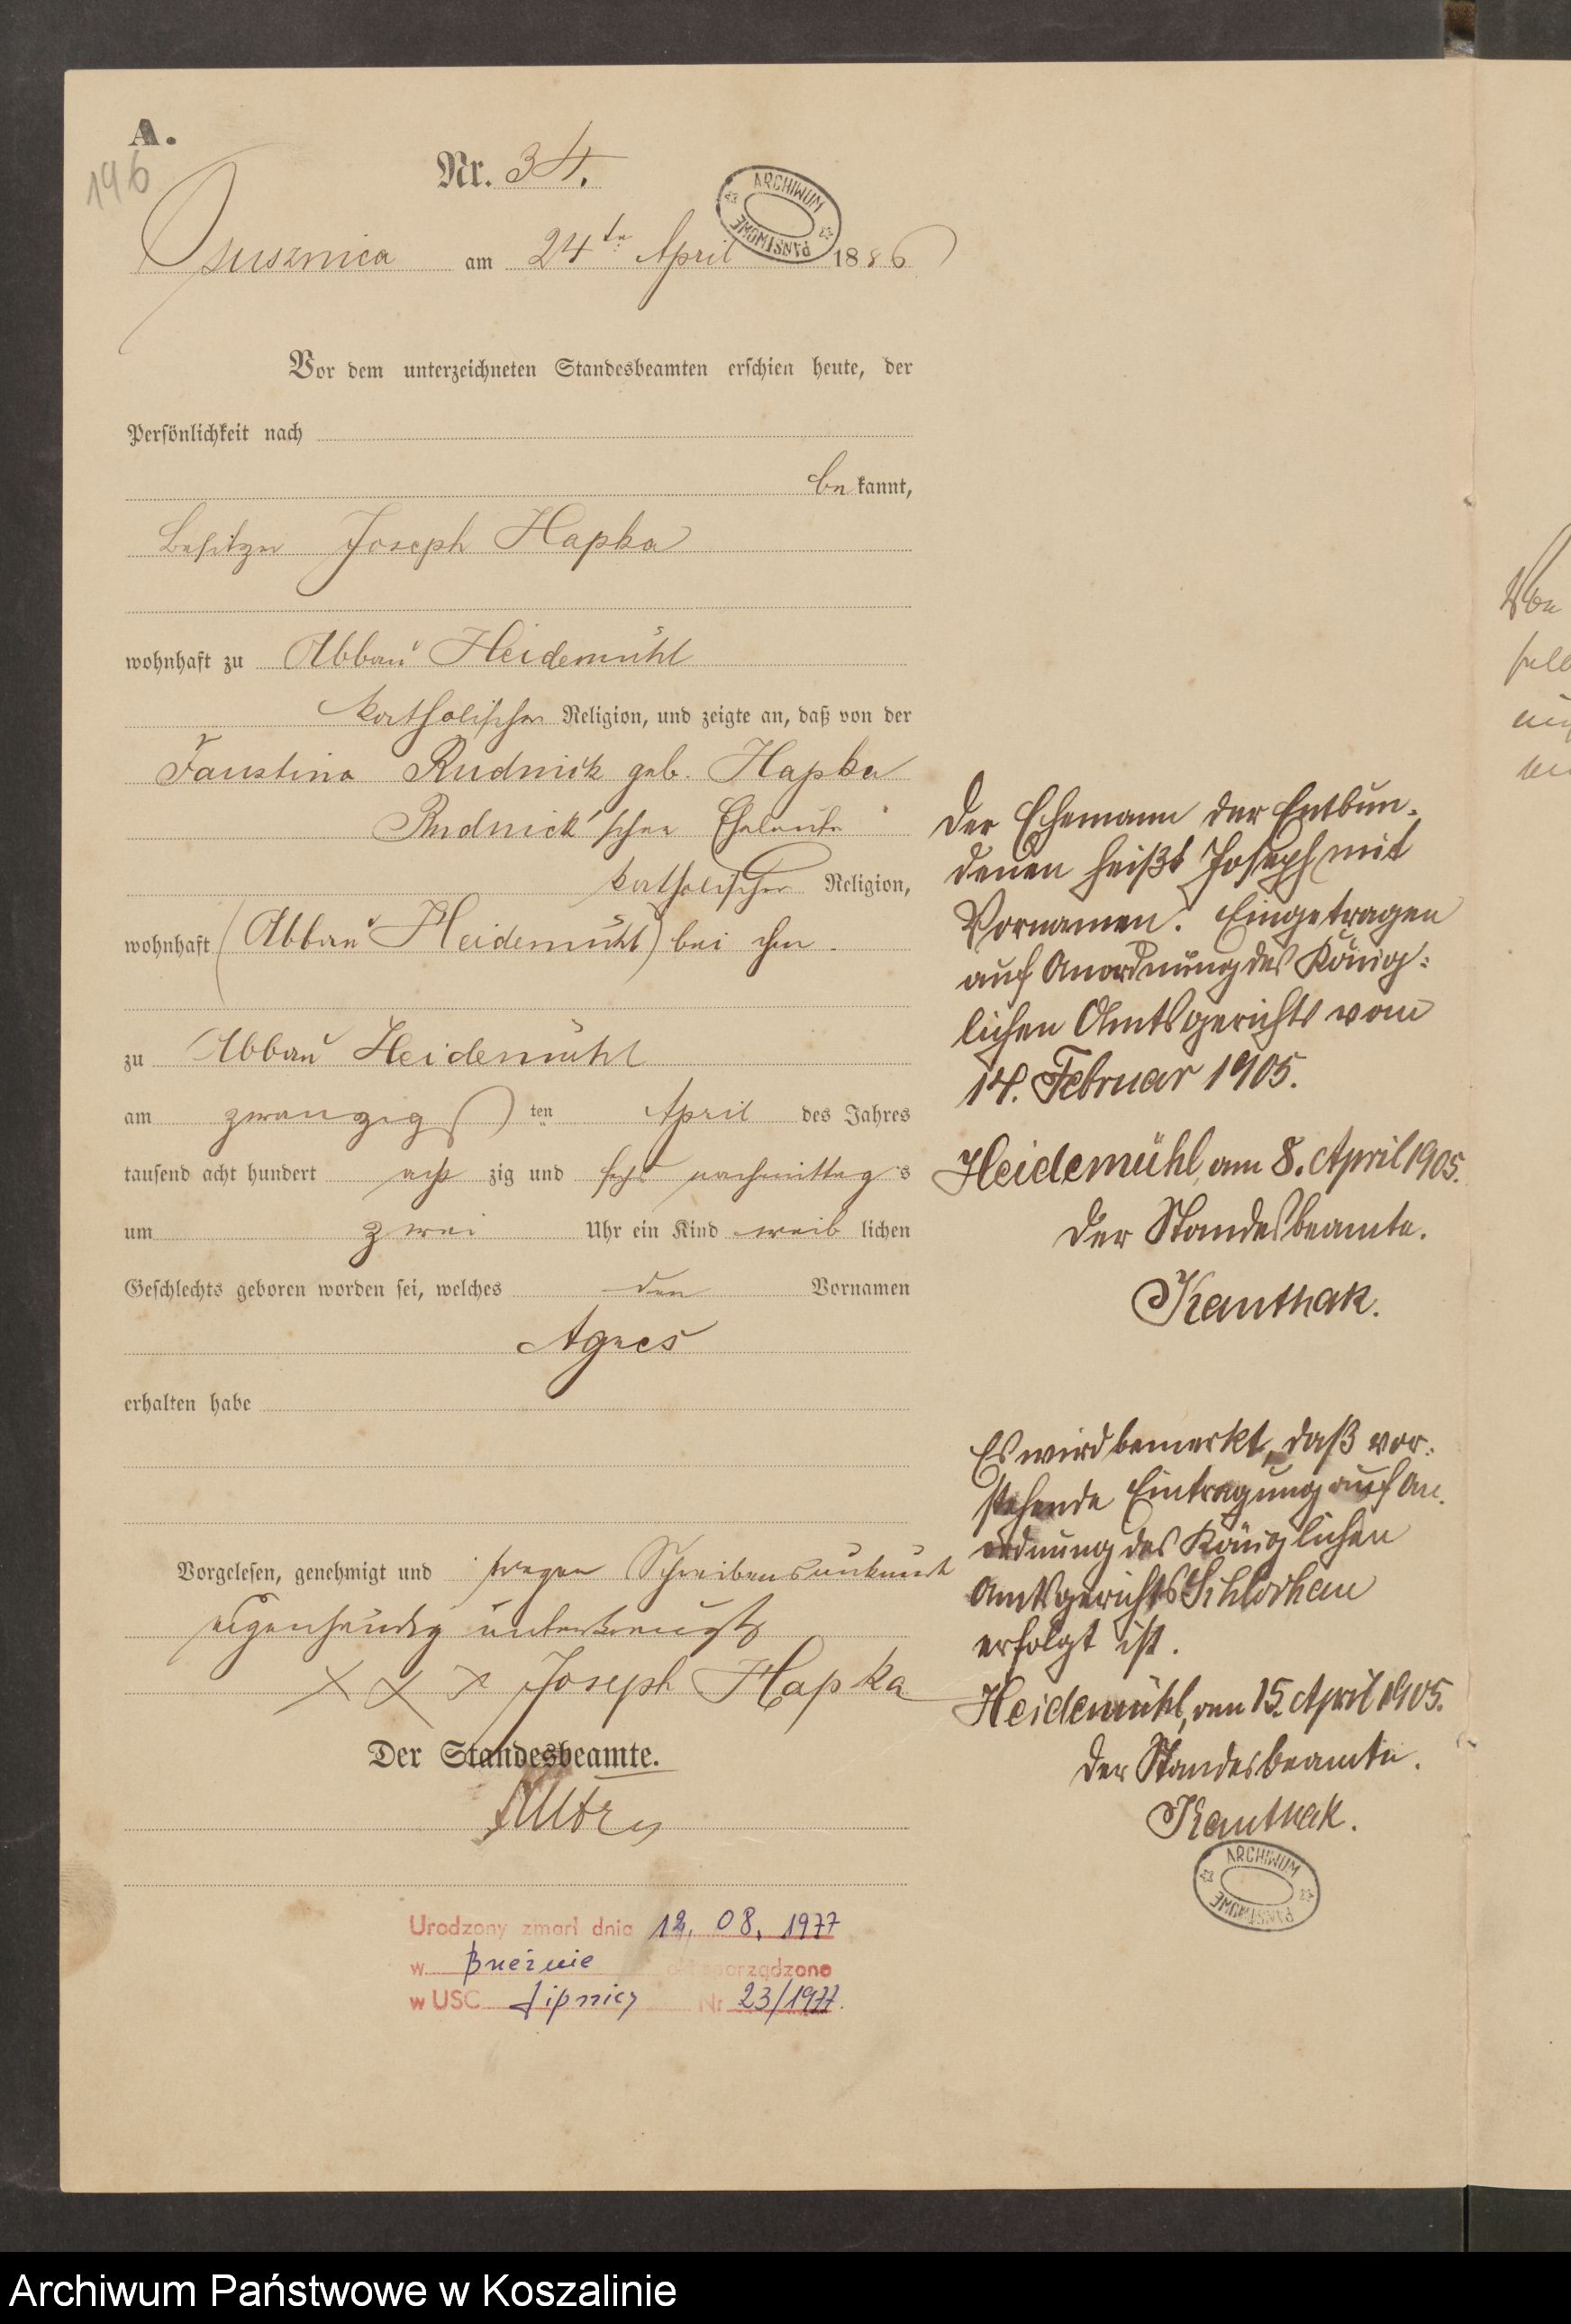 A.
196
Nr. 34.
ARCHIWUM PAŃSTWOWE
Osusznica am 24te April 1886
Vor dem unterzeichneten Standesbeamten erschien heute, der
Persönlichkeit nach
be kannt,
Besitzer Joseph Hapka
wohnhaft zu Abbau Heidemühl
katholischer Religion, und zeigte an, daß von der
Faustina Rudnick geb. Hapka
Rudnick'schen Eheleute
katholischer Religion,
wohnhaft (Abbau Heidemühl) bei ihm.
zu Abbau Heidemühl
am zwanzigs ten April des Jahres
tausend acht hundert acht zig und sechs nachmittag s
um zwei Uhr ein Kind weib lichen
Geschlechts geboren worden sei, welches den Vornamen
Agnes
erhalten habe
Vorgelesen, genehmigt und wegen Schreibensunkunde
eigenhändig unterkreuzt
X X X Joseph Hapka
Der Standesbeamte.
Urodzony zmarł dnia 12. 08. 1977
w Brzeźnie akt sporządzono
w USC Lipnicy Nr 23/1977.
Der Ehemann der Entbun-
denen heißt Joseph mit
Vornamen. Eingetragen
auf Anordnung des König-
lichen Amtsgerichts vom
14. Februar 1905.
Heidemühl, am 8. April 1905.
Der Standesbeamte.
Kanthak.
Es wird bemerkt, daß vor-
stehende Eintragung auf An-
ordnung des Königlichen
Amtsgerichts Schlochau
erfolgt ist.
Heidemühl, am 15. April 1905.
Der Standesbeamte.
Kanthak.
ARCHIWUM PAŃSTWOWE
Archiwum Państwowe w Koszalinie